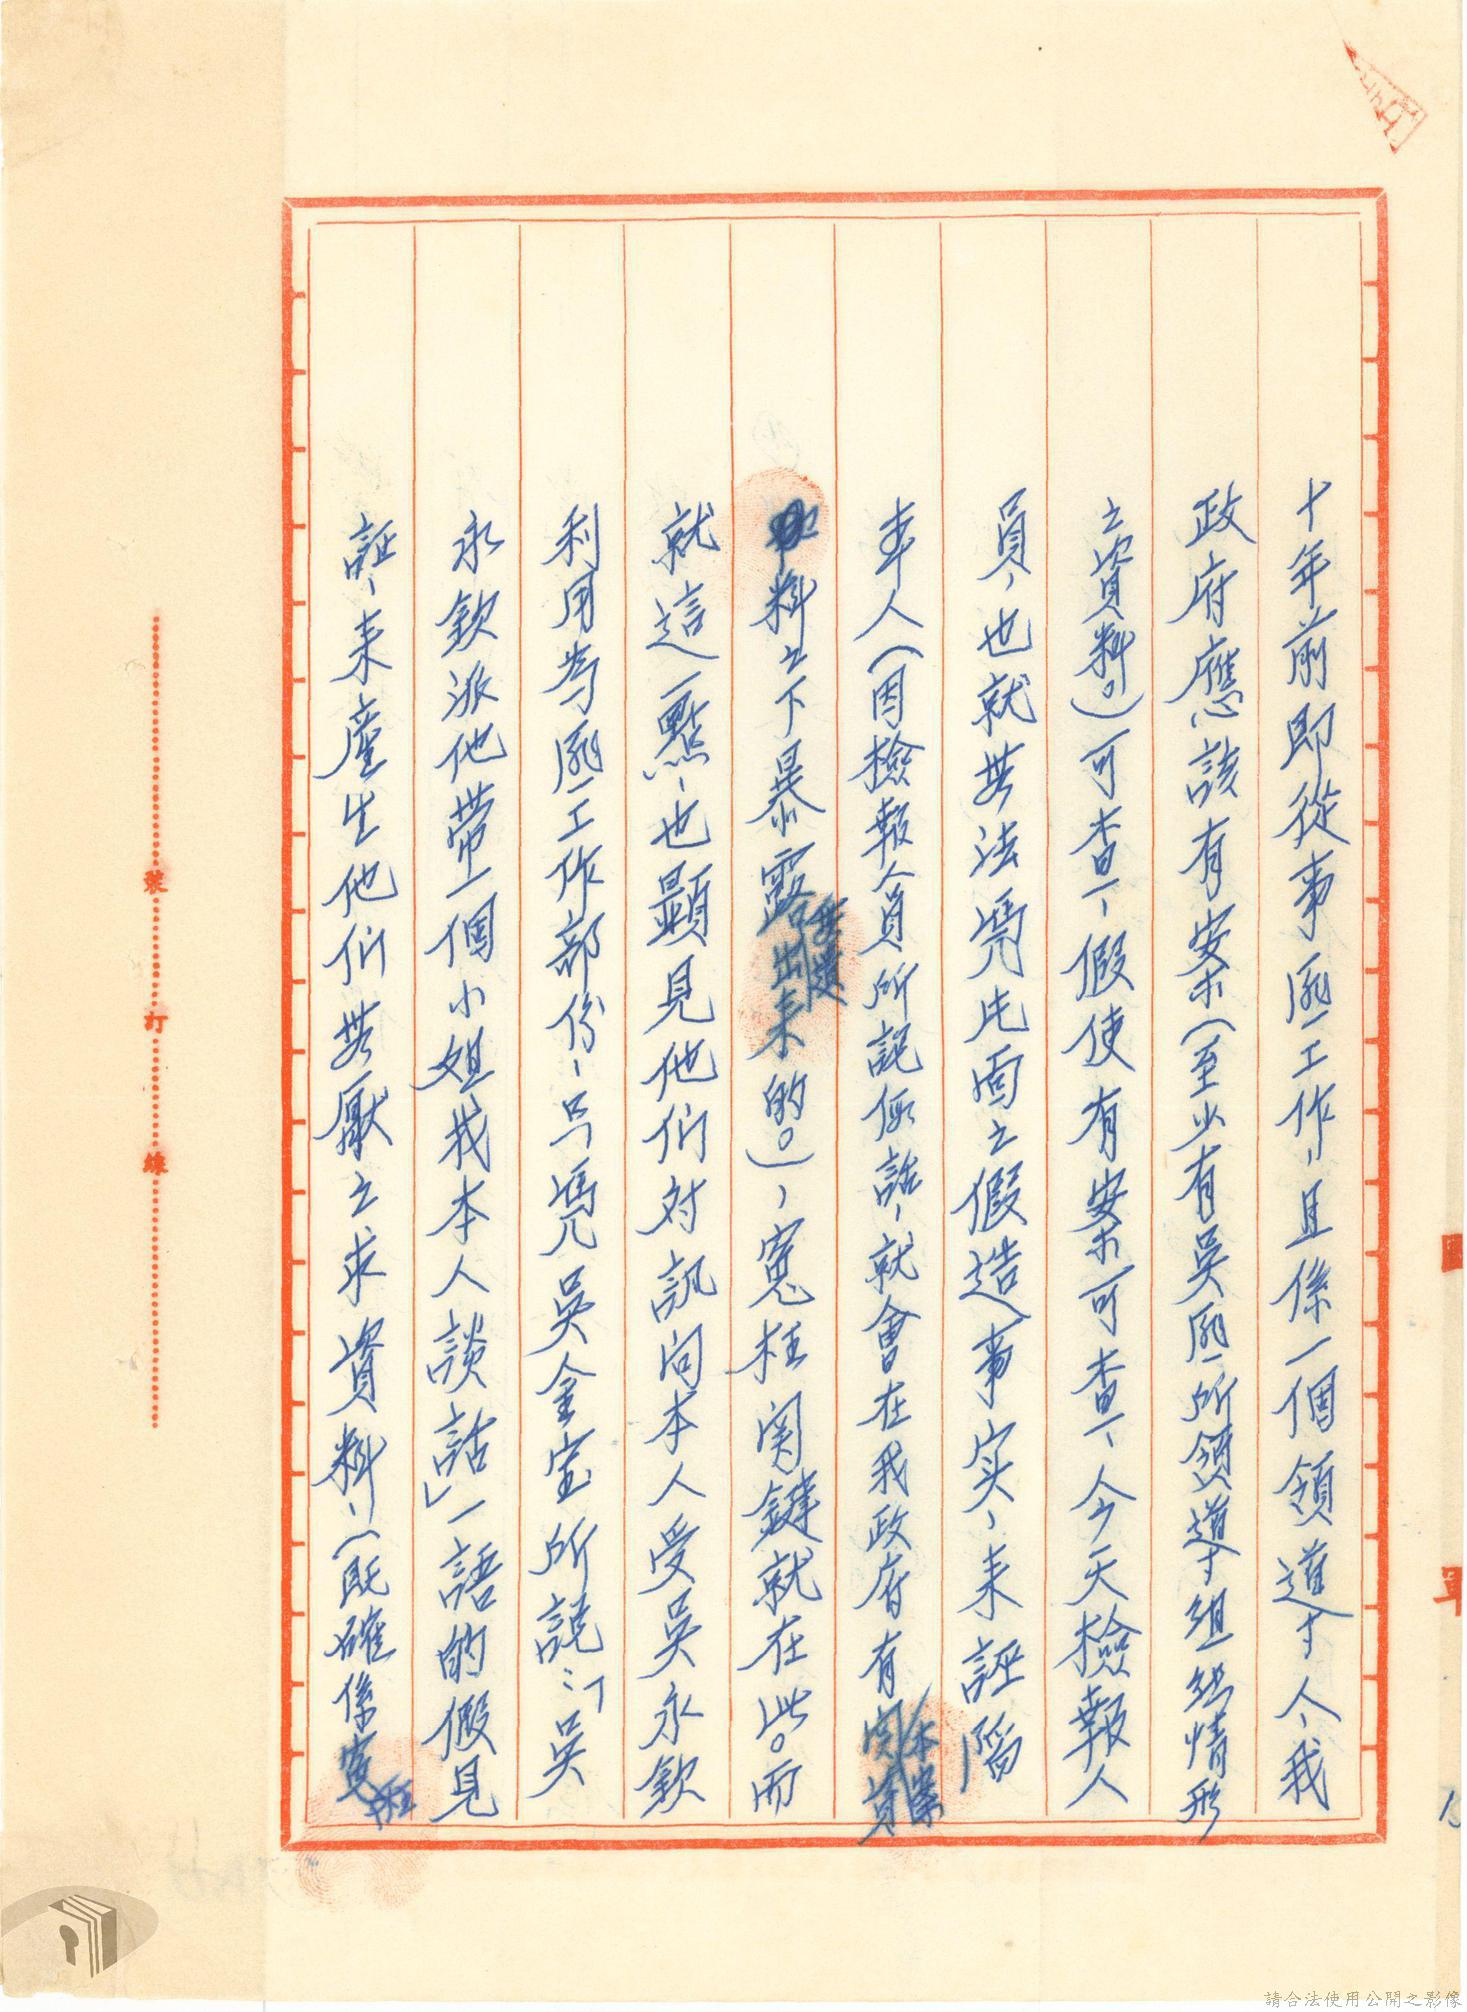 十年前即從事匪工作，且係一個領導人，我
政府應該有案（至少有吳匪所領導組織情形
之資料。）可查，假使有案可查，今天檢報人
員，也就無法憑片面之假造事實，來誣陷
本人（因檢報人員所說假話，就會在我政府有
料之下暴露出來的。），冤枉関鍵就在此。而
就這一點，也顯見他們対訊问本人受吳永欽
利用為匪工作部份，只憑吳金宝所說：「吳
永欽派他帶一個小姐找本人談話」一語的假見
証，来產生他们無厭之求資料，（既確係冤枉
裝 訂 線
請合法使用公開之影像